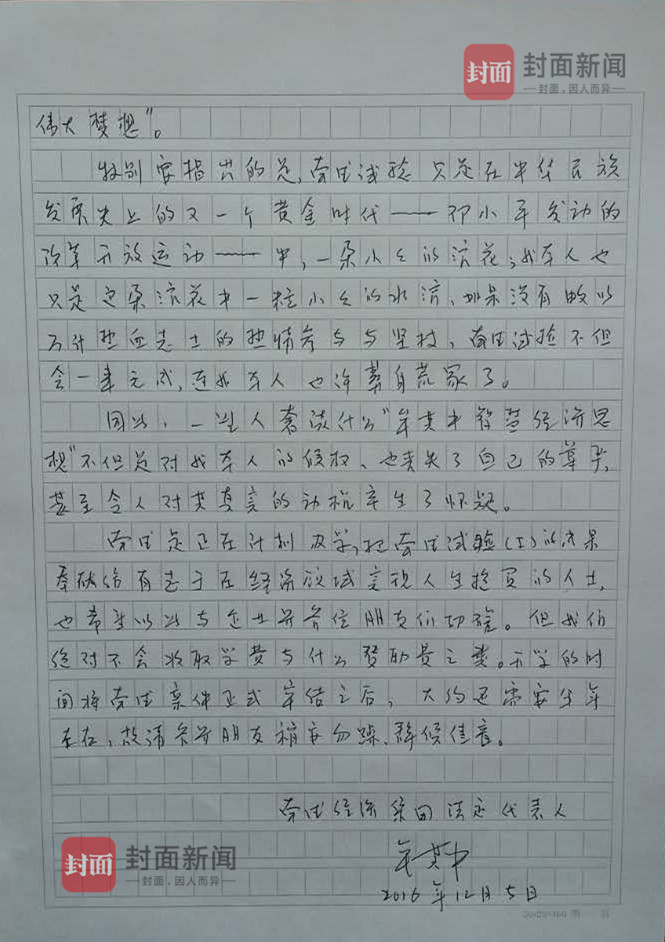 封面 封面新闻
封面，因人而异
伟大梦想”。
特别要指出的是，南德试验只是在中华民族
发展史上的又一个黄金时代——邓小平发动的
改革开放运动——中，一朵小小的浪花；我本人也
只是这朵浪花中一粒小小的水滴，如果没有数以
万计热血志士的热情参与与坚持，南德试验不但
会一事无成，连我本人也许葬身荒冢了。
因此，一些人奢谈什么“牟其中智慧经济思
想”不但是对我本人的侵权、也丧失了自己的尊严，
甚至令人对其真实的动机产生了怀疑。
南德是正在计划办学，把南德试验(I)的成果
奉献给有志于在经济领域实现人生抱负的人士，
也希望以此与企业界各位朋友们切磋。但我们
绝对不会收取学费与什么赞助费之类。开学的时
间将南德案件正式审结之后，大约还需要半年
左右，故请各界朋友稍安勿躁、静候佳音。
南德经济集团法定代表人
牟其中
2016年12月5日
封面 封面新闻
封面，因人而异